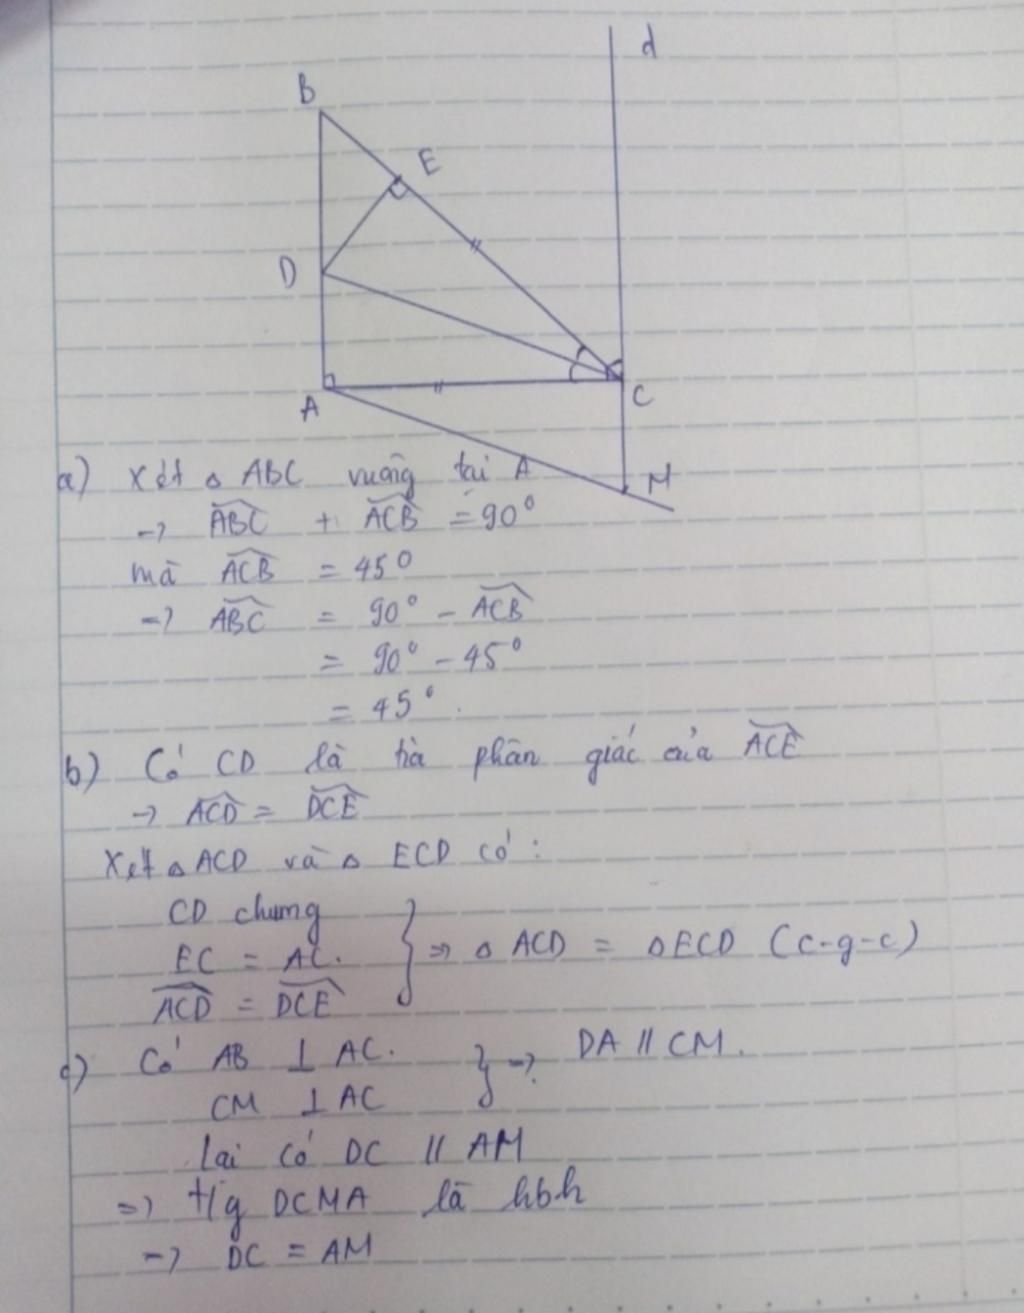 d
B
E
D
A
C
M
a) Xét △ ABC vuông tại A
→ \widehat{ABC} + \widehat{ACB} = 90°
mà \widehat{ACB} = 45°
→ \widehat{ABC} = 90° - \widehat{ACB}
= 90° - 45°
= 45°.
b) Có CD là tia phân giác của \widehat{ACE}
→ \widehat{ACD} = \widehat{DCE}
Xét △ ACD và △ ECD có :
CD chung
EC = AC. } ⇒ △ ACD = △ ECD (c-g-c)
\widehat{ACD} = \widehat{DCE}
c) Có AB ⊥ AC. } → DA // CM.
CM ⊥ AC
lại có DC // AM
⇒ t/g DCMA là hbh
→ DC = AM